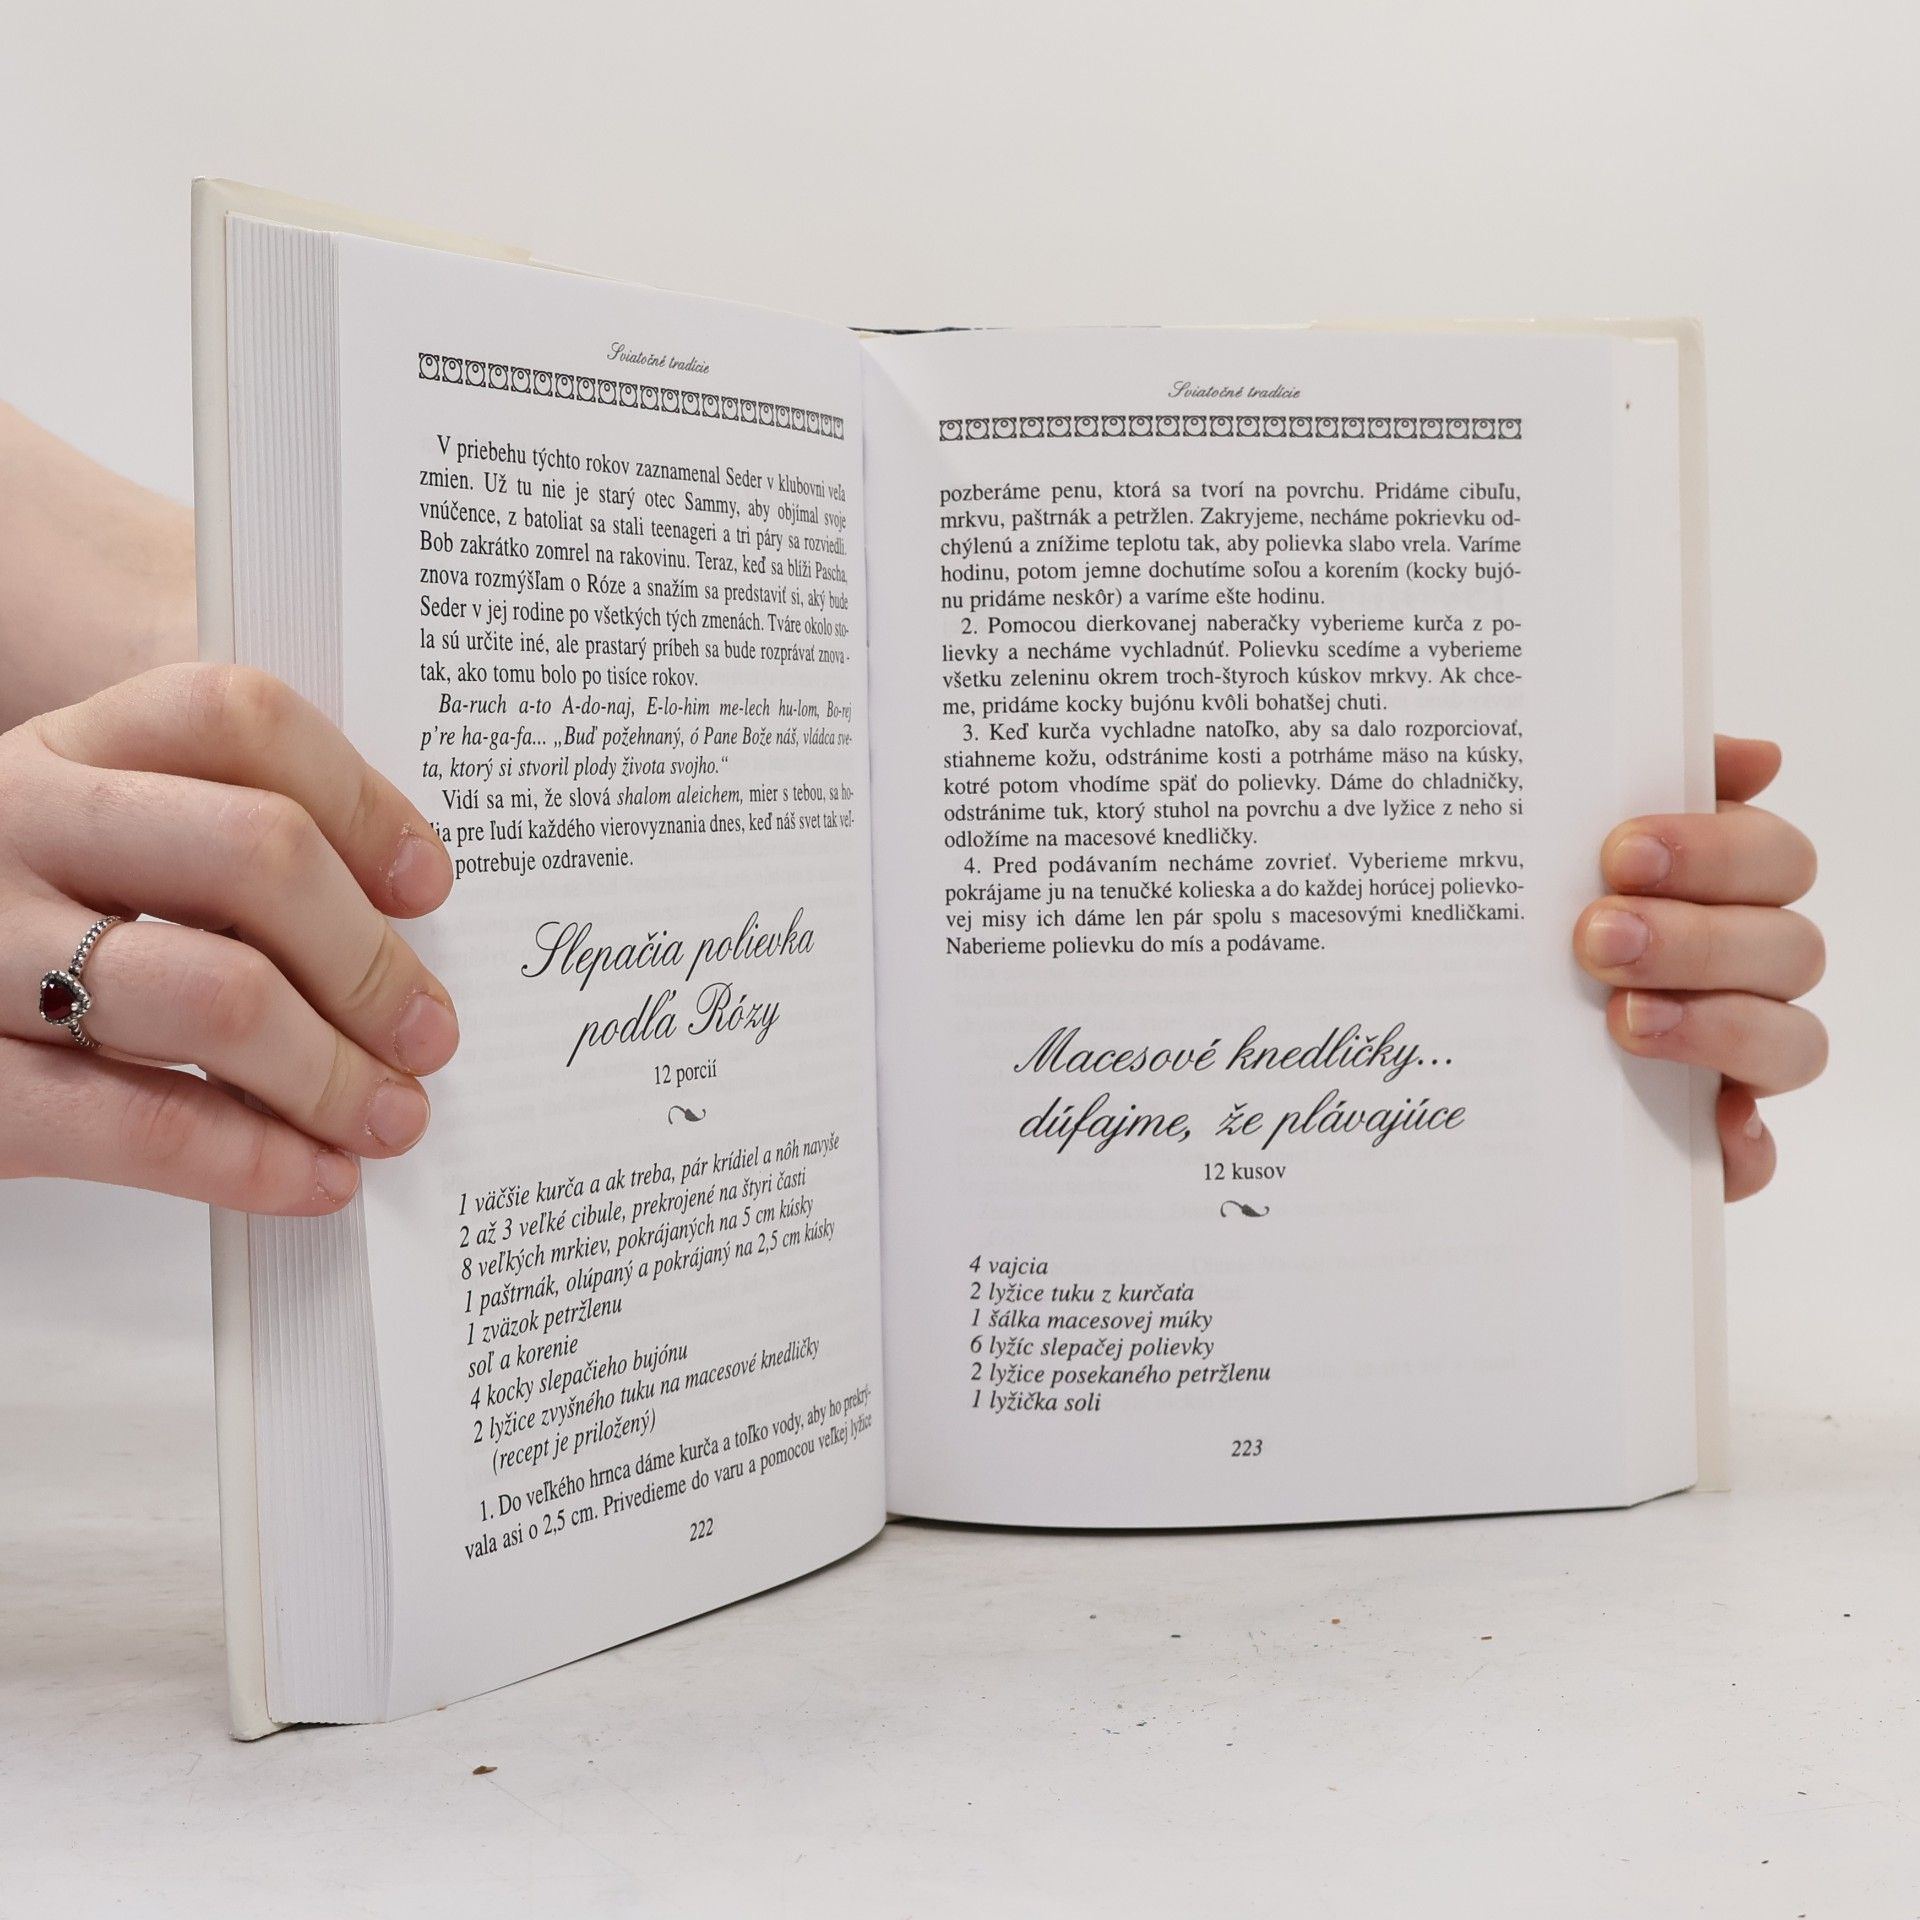 Sviatočné tradície
V priebehu týchto rokov zaznamenal Seder v klubovni veľa
zmien. Už tu nie je starý otec Sammy, aby objímal svoje
vnúčence, z batoliat sa stali teenageri a tri páry sa rozviedli.
Bob zakrátko zomrel na rakovinu. Teraz, keď sa blíži Pascha,
znova rozmýšľam o Róze a snažím sa predstaviť si, aký bude
Seder v jej rodine po všetkých tých zmenách. Tváre okolo sto-
la sú určite iné, ale prastarý príbeh sa bude rozprávať znova -
tak, ako tomu bolo po tisíce rokov.
Ba-ruch a-to A-do-naj, E-lo-him me-lech hu-lom, Bo-rej
p're ha-ga-fa... „Buď požehnaný, ó Pane Bože náš, vládca sve-
ta, ktorý si stvoril plody života svojho.“
Vidí sa mi, že slová shalom aleichem, mier s tebou, sa ho-
dia pre ľudí každého vierovyznania dnes, keď náš svet tak veľ-
potrebuje ozdravenie.
Slepačia polievka
podľa Rózy
12 porcií
1 väčšie kurča a ak treba, pár krídiel a nôh navyše
2 až 3 veľké cibule, prekrojené na štyri časti
8 veľkých mrkiev, pokrájaných na 5 cm kúsky
1 paštrnák, olúpaný a pokrájaný na 2,5 cm kúsky
1 zväzok petržlenu
soľ a korenie
4 kocky slepačieho bujónu
2 lyžice zvyšného tuku na macesové knedličky
(recept je priložený)
1. Do veľkého hrnca dáme kurča a toľko vody, aby ho prekrý-
vala asi o 2,5 cm. Privedieme do varu a pomocou veľkej lyžice
222
Sviatočné tradície
pozberáme penu, ktorá sa tvorí na povrchu. Pridáme cibuľu,
mrkvu, paštrnák a petržlen. Zakryjeme, necháme pokrievku od-
chýlenú a znížime teplotu tak, aby polievka slabo vrela. Varíme
hodinu, potom jemne dochutíme soľou a korením (kocky bujó-
nu pridáme neskôr) a varíme ešte hodinu.
2. Pomocou dierkovanej naberačky vyberieme kurča z po-
lievky a necháme vychladnúť. Polievku scedíme a vyberieme
všetku zeleninu okrem troch-štyroch kúskov mrkvy. Ak chce-
me, pridáme kocky bujónu kvôli bohatšej chuti.
3. Keď kurča vychladne natoľko, aby sa dalo rozporciovať,
stiahneme kožu, odstránime kosti a potrháme mäso na kúsky,
kotré potom vhodíme späť do polievky. Dáme do chladničky,
odstránime tuk, ktorý stuhol na povrchu a dve lyžice z neho si
odložíme na macesové knedličky.
4. Pred podávaním necháme zovrieť. Vyberieme mrkvu,
pokrájame ju na tenučké kolieska a do každej horúcej polievko-
vej misy ich dáme len pár spolu s macesovými knedličkami.
Naberieme polievku do mís a podávame.
Macesové knedličky...
dúfajme, že plávajúce
12 kusov
4 vajcia
2 lyžice tuku z kurčaťa
1 šálka macesovej múky
6 lyžíc slepačej polievky
2 lyžice posekaného petržlenu
1 lyžička soli
223